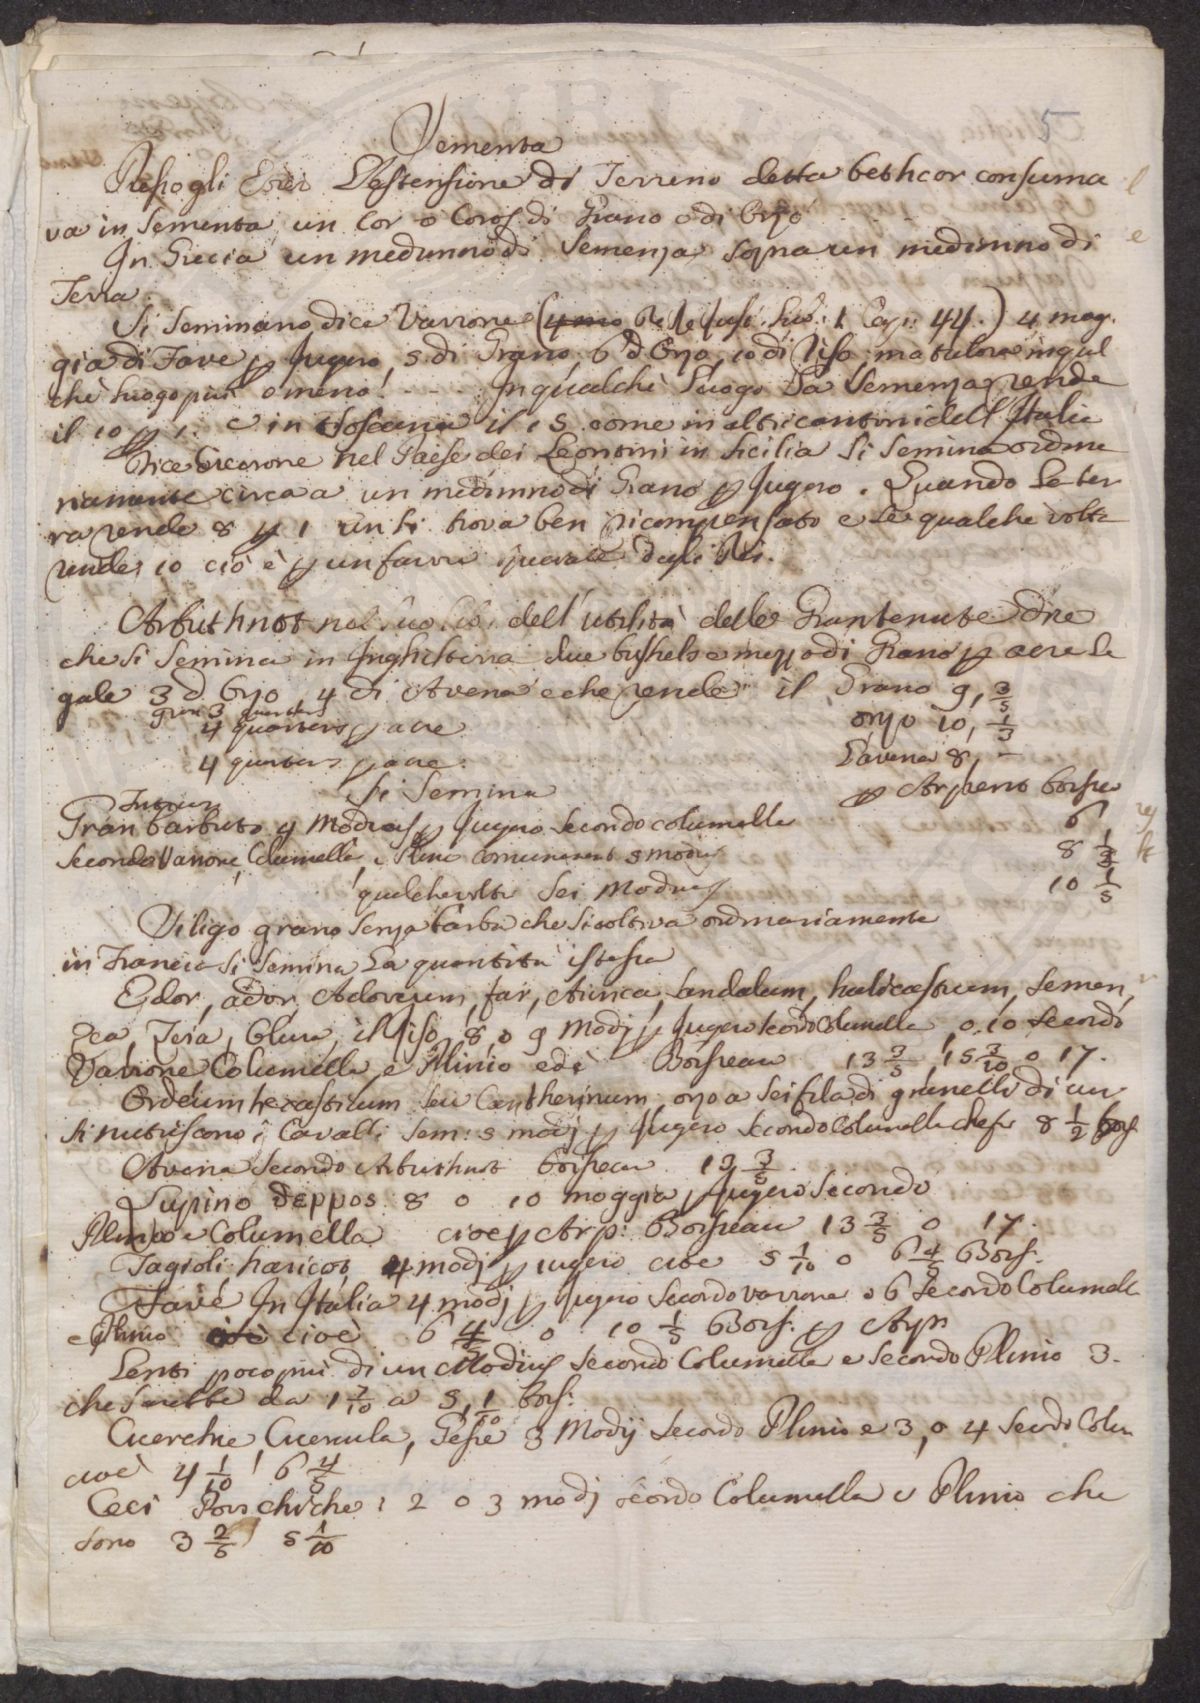 5
Sementa
Presso gli Ebrei L'estensione di Terreno detta bethcor consuma
va in Sementa un Cor o Coros di Grano o di Orzo
In Grecia un medimno di Semenza sopra un medimno di
Terra.
Si Seminano, dice Varrone (4 mo De Re Rust. Lib: 1 Cap: 44.) 4 mog-
gia di Fave p Jugero, 5 di Grano, 6 d'Orzo, 10 di Riso ma talora in qual
che luogo più o meno. - - - In qualche luogo La Semenza rende
il 10 p 1. e in toscana il 15 come in altri contorni dell'Italia
Dice Cicerone nel Paese dei Leontini in Sicilia Si Semina ordina
riamente circa a un medimno di Grano p Jugero. Quando la ter
ra rende 8 p 1 un si trova ben ricompensato e se qualche volta
rende 10 ciò è p un favore speciale degli Dei.
Arbuthnot nel suo Lib. dell'utilità delle Gran tenute dice
che Si Semina in Inghilterra due bushels e mezzo di Grano p acre Le
gale 3 d'Orzo, 4 di Avena e che rende il Grano 9, 3/5
gran 3 quarters
4 quarters p acre orzo 10, 1/3
4 quarters p acre L'avena 8, -
Si Semina p Arpent boisseau
Triticum
Gran barbuto 4 Modios p Jugero Secondo columella 6
Secondo Varrone, Columella e Plinio comunement 5 modii 8 1/2
qualchevolta Sei Modius 10 1/5
Siligo grano Senza barba che Si coltiva ordinariamente
in Francia Si Semina La quantità istessa
Edor, ador, Adoreum, far, Arinca, Sandalum, halicastrum, Semen,
Zea, Teia, Olura, il Riso 8, o 9 Modj p Jugero Secondo Columella o 10 Secondo
Varrone Columella, e Plinio ed è Boisseau 13 3/5 15 3/10 o 17.
Ordeum hexasticum Seu Cantherinum, orzo a Sei fila di granelli di cui
Si nutriscono i Cavalli Sem: 5 modj p Jugero Secondo Columella che fa 8 1/2 bois
Avena Secondo Arbuthnot boisseau 13 3/5
Lupino Θερμος 8 o 10 moggia p Jugero Secondo
Plinio e Columella cioè p Arp: Boisseau 13 3/5 o 17.
Fagioli haricot 4 modj p iugero cioe 5 1/10 o 6 4/5 Bois.
Fave In Italia 4 modj p Jugero Secondo varrone o 6 Secondo Columella
e Plinio cioè cioè 6 4/5 o 10 1/5 Bois. p Arp.
Lenti poco più di un Modius Secondo Columella e Secondo Plinio 3.
che Sarebbe da 1 7/10 a 5, 1/10 bois.
Cicerchie, Cicercula, Gesse 3 Modij Secondo Plinio e 3, o 4 Secondo Colum
cioè 4 1/10 6 4/5
Ceci Pois chiche 2 o 3 modj Secondo Columella e Plinio che
Sono 3 2/5 5 1/10